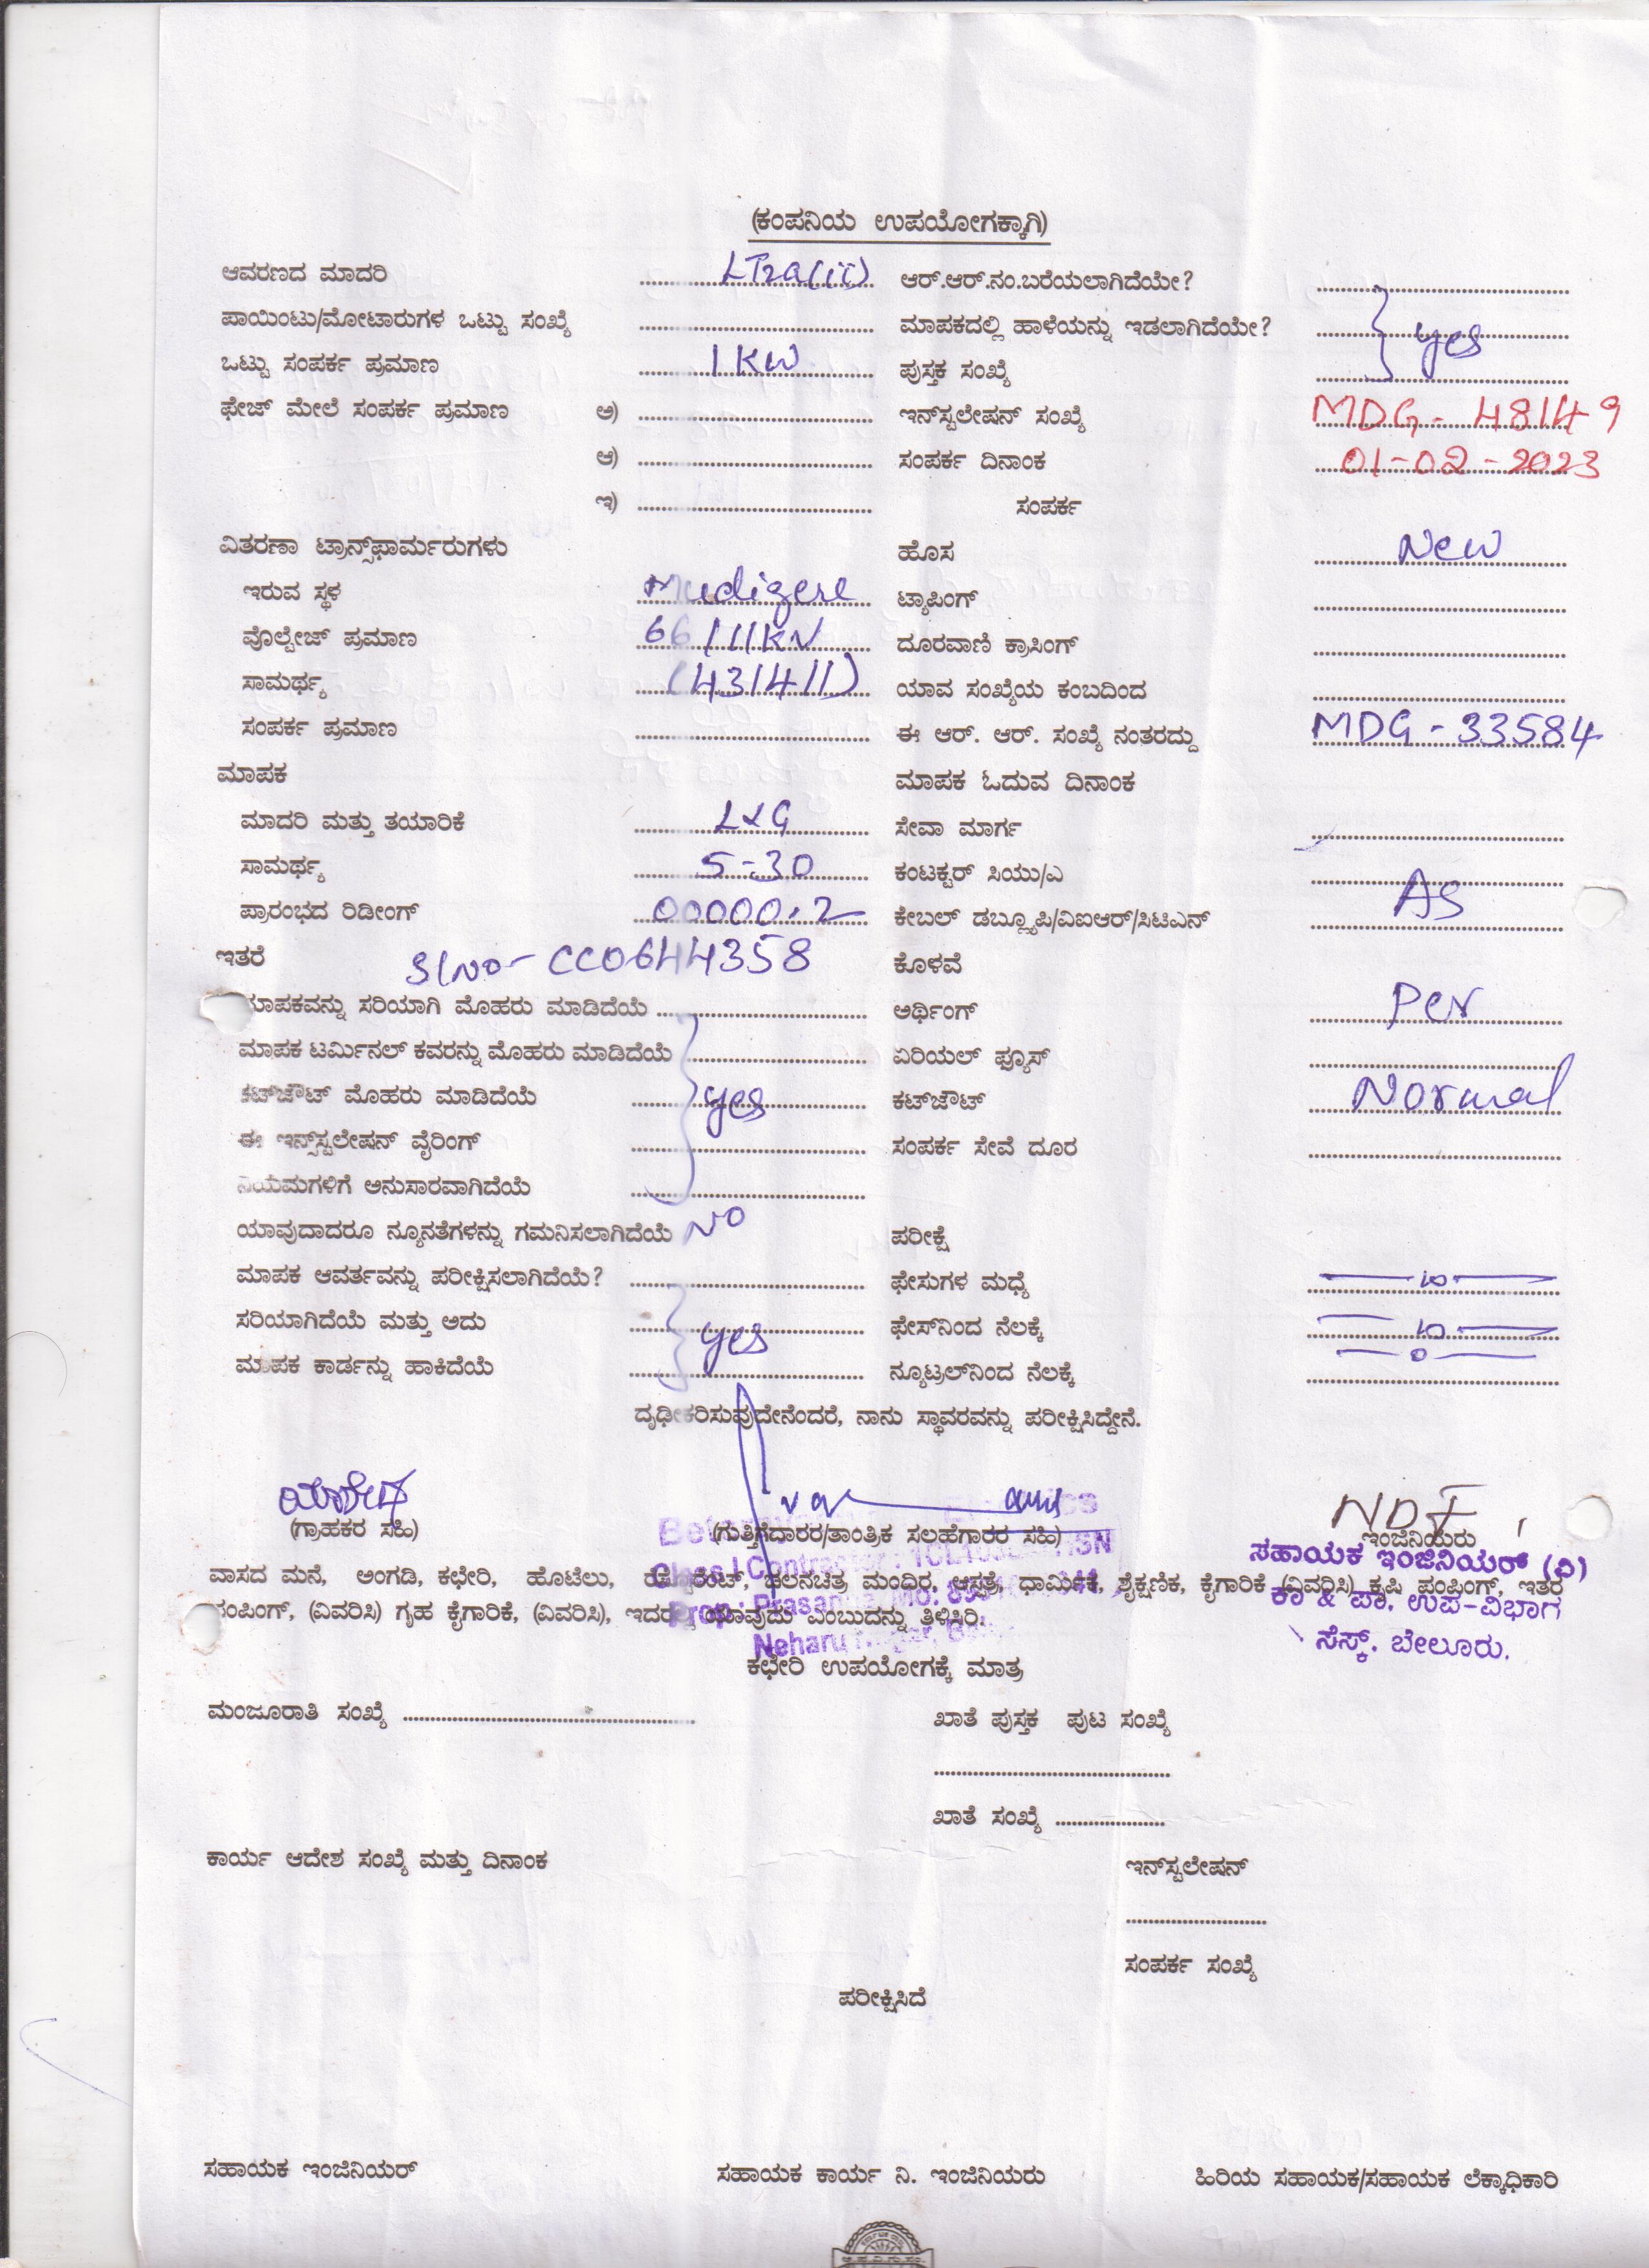 (ಕಂಪನಿಯ ಉಪಯೋಗಕ್ಕಾಗಿ)
ಆವರಣದ ಮಾದರಿ LT2a(ii) ಆರ್.ಆರ್.ನಂ.ಬರೆಯಲಾಗಿದೆಯೇ?
ಪಾಯಿಂಟು/ಮೋಟಾರುಗಳ ಒಟ್ಟು ಸಂಖ್ಯೆ ಮಾಪಕದಲ್ಲಿ ಹಾಳೆಯನ್ನು ಇಡಲಾಗಿದೆಯೇ? yes
ಒಟ್ಟು ಸಂಪರ್ಕ ಪ್ರಮಾಣ 1 KW ಪುಸ್ತಕ ಸಂಖ್ಯೆ
ಫೇಜ್ ಮೇಲೆ ಸಂಪರ್ಕ ಪ್ರಮಾಣ ಅ) ಇನ್‌ಸ್ಟಲೇಷನ್ ಸಂಖ್ಯೆ MDG - 48149
ಆ) ಸಂಪರ್ಕ ದಿನಾಂಕ 01-02-2023
ಇ) ಸಂಪರ್ಕ
ವಿತರಣಾ ಟ್ರಾನ್ಸ್‌ಫಾರ್ಮರುಗಳು ಹೊಸ New
ಇರುವ ಸ್ಥಳ Mudigere ಟ್ಯಾಪಿಂಗ್
ವೊಲ್ಟೇಜ್ ಪ್ರಮಾಣ 66/11KV ದೂರವಾಣಿ ಕ್ರಾಸಿಂಗ್
ಸಾಮರ್ಥ್ಯ (431411) ಯಾವ ಸಂಖ್ಯೆಯ ಕಂಬದಿಂದ
ಸಂಪರ್ಕ ಪ್ರಮಾಣ ಈ ಆರ್. ಆರ್. ಸಂಖ್ಯೆ ನಂತರದ್ದು MDG - 33584
ಮಾಪಕ ಮಾಪಕ ಓದುವ ದಿನಾಂಕ
ಮಾದರಿ ಮತ್ತು ತಯಾರಿಕೆ L&G ಸೇವಾ ಮಾರ್ಗ
ಸಾಮರ್ಥ್ಯ 5-30 ಕಂಟಕ್ಟರ್ ಸಿಯು/ಎ
ಪ್ರಾರಂಭದ ರಿಡೀಂಗ್ 00000.2 ಕೇಬಲ್ ಡಬ್ಲ್ಯೂಪಿ/ವಿಐಆರ್/ಸಿಟಿಎನ್ AS
ಇತರೆ Sl No- CC0644358 ಕೊಳವೆ
ಮಾಪಕವನ್ನು ಸರಿಯಾಗಿ ಮೊಹರು ಮಾಡಿದೆಯೆ ಅರ್ಥಿಂಗ್ Per
ಮಾಪಕ ಟರ್ಮಿನಲ್ ಕವರನ್ನು ಮೊಹರು ಮಾಡಿದೆಯೆ ಏರಿಯಲ್ ಫ್ಯೂಸ್
ಕಟ್‌ಔಟ್ ಮೊಹರು ಮಾಡಿದೆಯೆ yes ಕಟ್‌ಔಟ್ Normal
ಈ ಇನ್ಸ್‌ಸ್ಟಲೇಷನ್ ವೈರಿಂಗ್ ಸಂಪರ್ಕ ಸೇವೆ ದೂರ
ನಿಯಮಗಳಿಗೆ ಅನುಸಾರವಾಗಿದೆಯೆ
ಯಾವುದಾದರೂ ನ್ಯೂನತೆಗಳನ್ನು ಗಮನಿಸಲಾಗಿದೆಯೆ NO ಪರೀಕ್ಷೆ
ಮಾಪಕ ಆವರ್ತವನ್ನು ಪರೀಕ್ಷಿಸಲಾಗಿದೆಯೆ? ಫೇಸುಗಳ ಮಧ್ಯೆ
ಸರಿಯಾಗಿದೆಯೆ ಮತ್ತು ಅದು yes ಫೇಸ್‌ನಿಂದ ನೆಲಕ್ಕೆ
ಮಾಪಕ ಕಾರ್ಡನ್ನು ಹಾಕಿದೆಯೆ ನ್ಯೂಟ್ರಲ್‌ನಿಂದ ನೆಲಕ್ಕೆ
ದೃಢೀಕರಿಸುವುದೇನೆಂದರೆ, ನಾನು ಸ್ಥಾವರವನ್ನು ಪರೀಕ್ಷಿಸಿದ್ದೇನೆ.
(ಗ್ರಾಹಕರ ಸಹಿ) (ಗುತ್ತಿಗೆದಾರರ/ತಾಂತ್ರಿಕ ಸಲಹೆಗಾರರ ಸಹಿ) ಇಂಜಿನಿಯರು
ಸಹಾಯಕ ಇಂಜಿನಿಯರ್ (ವಿ)
Class I Contractor
ವಾಸದ ಮನೆ, ಅಂಗಡಿ, ಕಛೇರಿ, ಹೊಟೆಲು, ಚಲನಚಿತ್ರ ಮಂದಿರ, ಆಸ್ಪತ್ರೆ, ಧಾರ್ಮಿಕ, ಶೈಕ್ಷಣಿಕ, ಕೈಗಾರಿಕೆ (ವಿವರಿಸಿ) ಕೃಷಿ ಪಂಪಿಂಗ್, ಇತರ
ಕಾ & ಪಾ. ಉಪ-ವಿಭಾಗ
ಪಂಪಿಂಗ್, (ವಿವರಿಸಿ) ಗೃಹ ಕೈಗಾರಿಕೆ, (ವಿವರಿಸಿ), ಯಾವುದು ಎಂಬುದನ್ನು ತಿಳಿಸಿರಿ.
Neharu
ಸೆಸ್ಕ್. ಬೇಲೂರು.
ಕಛೇರಿ ಉಪಯೋಗಕ್ಕೆ ಮಾತ್ರ
ಮಂಜೂರಾತಿ ಸಂಖ್ಯೆ ಖಾತೆ ಪುಸ್ತಕ ಪುಟ ಸಂಖ್ಯೆ
ಖಾತೆ ಸಂಖ್ಯೆ
ಕಾರ್ಯ ಆದೇಶ ಸಂಖ್ಯೆ ಮತ್ತು ದಿನಾಂಕ ಇನ್‌ಸ್ಟಲೇಷನ್
ಸಂಪರ್ಕ ಸಂಖ್ಯೆ
ಪರೀಕ್ಷಿಸಿದೆ
ಸಹಾಯಕ ಇಂಜಿನಿಯರ್ ಸಹಾಯಕ ಕಾರ್ಯ ನಿ. ಇಂಜಿನಿಯರು ಹಿರಿಯ ಸಹಾಯಕ/ಸಹಾಯಕ ಲೆಕ್ಕಾಧಿಕಾರಿ